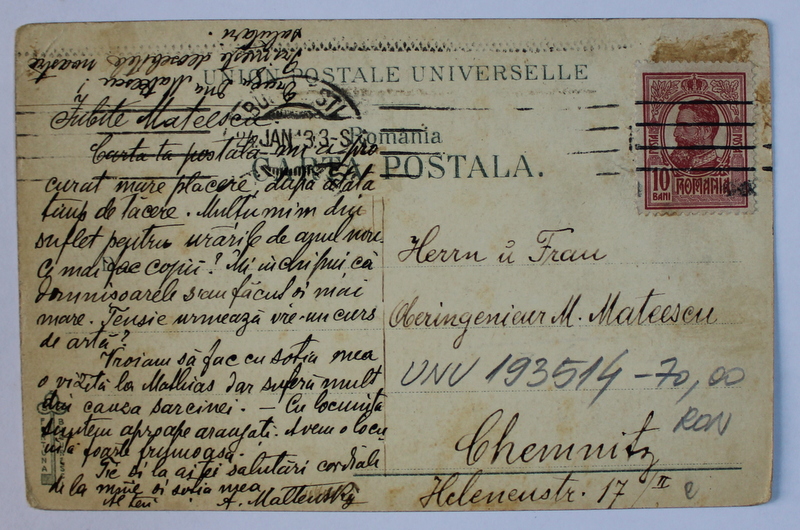 UNION POSTALE UNIVERSELLE
România
CARTA POSTALA.
JAN 13 3-S
10
BANI
ROMANIA
Iubite Mateescu
Carta ta postala mi-a pro
curat mare plăcere, după atâta
timp de tăcere. Mulțumim din
suflet pentru urările de anul nou.
Ce mai fac copiii? Mi închipui că
domnisoarele s'au făcut si mai
mare. Tensie urmează vre-un curs
de artă?
Voiam să fac cu soția mea
o vizită la Mathias dar suferă mult
din cauza sarcinei. — Cu locuința
suntem aproape aranjati. Avem o locu
ință foarte frumoasă.
Tie si la ai tei salutări cordiale
de la mine si soția mea
Al teu
Mateescu
deosebitele noastre
salutari.
Herrn u Frau
Oberingenieur M. Mateescu
UNU 193514 -70,00
RON
Chemnitz
Helenenstr. 17/II